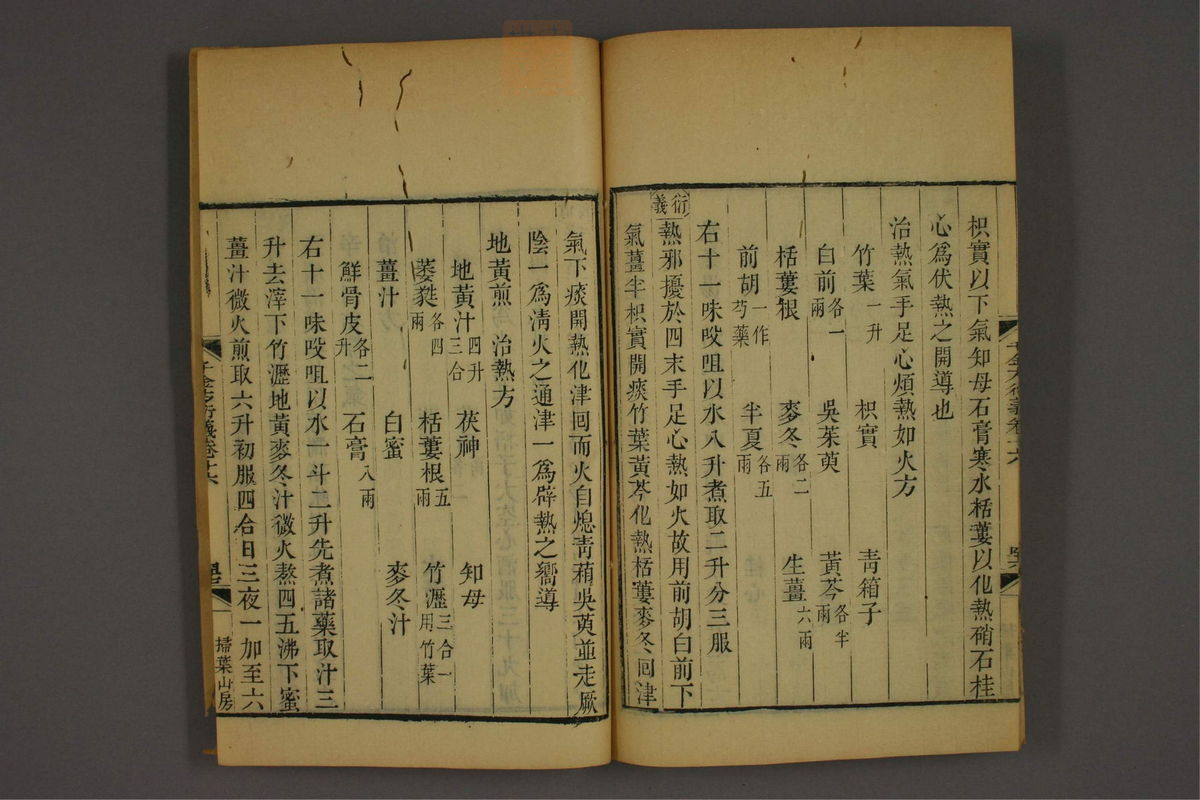 枳實以下氣知母石膏寒水栝蔞以化熱硝石桂
心爲伏熱之開導也
治熱氣手足心煩熱如火方
竹葉一升 枳實 青箱子
白前各一兩 吳茱萸 黃芩各半兩
栝蔞根 麥冬各二兩 生薑六兩
前胡一作芍藥 半夏各五兩
右十一味㕮咀以水八升煮取二升分三服
衍義
熱邪擾於四末手足心熱如火故用前胡白前下
氣薑半枳實開痰竹葉黃芩化熱栝蔞麥冬回津
氣下痰開熱化津回而火自熄青葙吳萸並走厥
陰一爲淸火之通津一爲辟熱之嚮導
地黃煎 治熱方
地黃汁四升三合 茯神 知母
萎蕤各四兩 栝蔞根五兩 竹瀝三合一用竹葉
薑汁 白蜜 麥冬汁
鮮骨皮各二升 石膏八兩
右十一味㕮咀以水一斗二升先煮諸藥取汁三
升去滓下竹瀝地黃麥冬汁微火熬四五沸下蜜
薑汁微火煎取六升初服四合日三夜一加至六
千金方衍義卷十六
掃葉山房